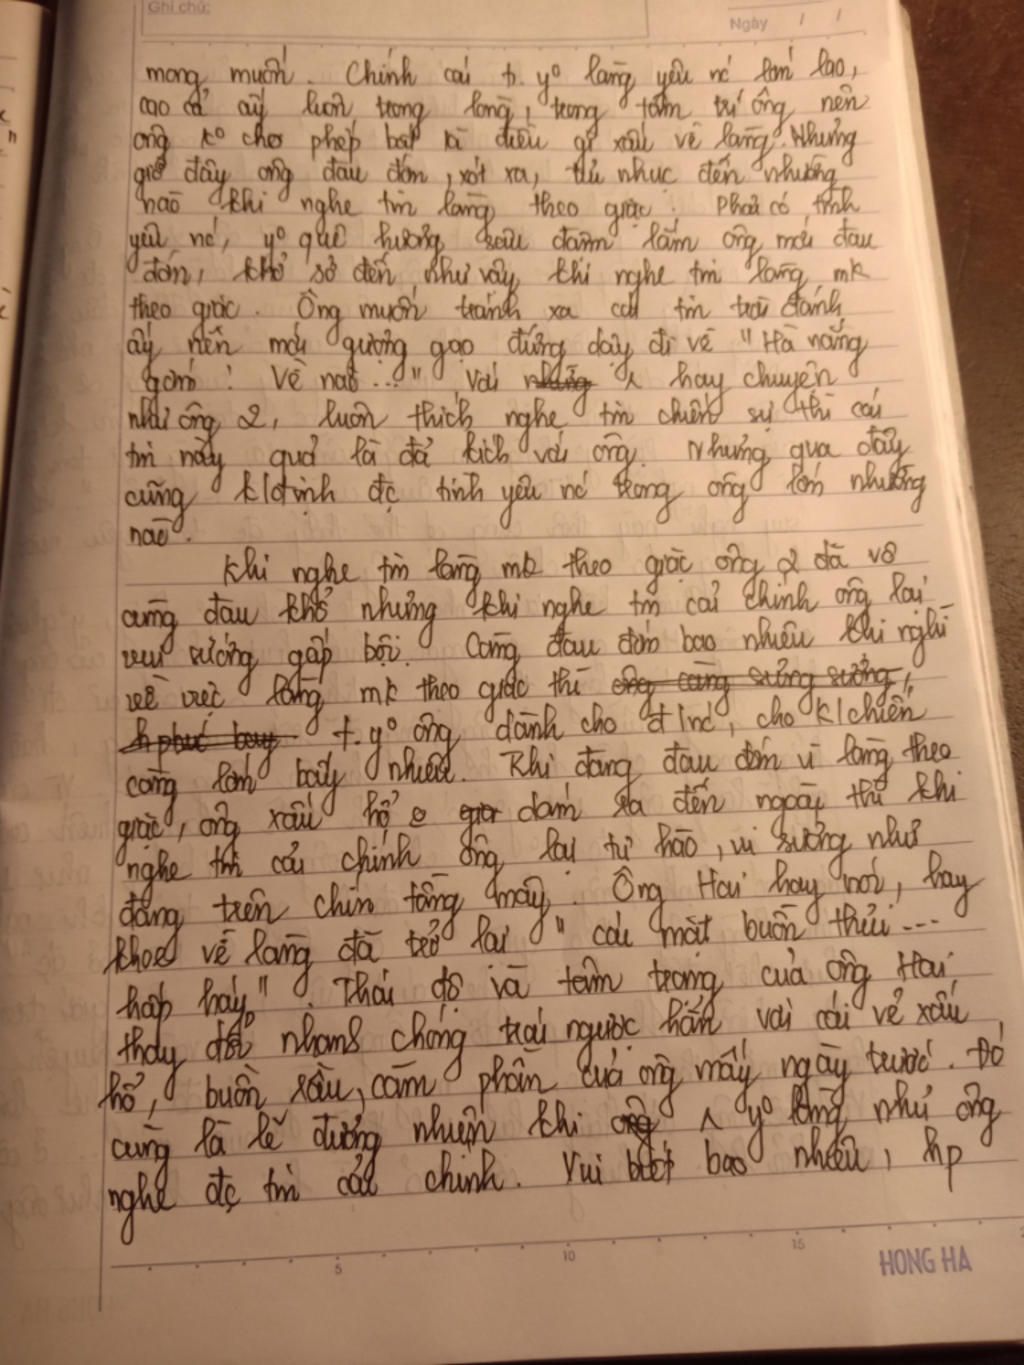 Ghi chú:
Ngày / /
mong muốn. Chính cái t. yº làng yêu nc lớn lao,
cao cả ấy luôn trong lòng, trong tâm trí ông nên
ông kº cho phép bất kì điều gì xấu về làng. Nhưng
giờ đây ông đau đớn, xót xa, tủi nhục đến nhường
nào khi nghe tin làng theo giặc. Phải có tình
yêu nc, yº quê hương sâu đậm lắm ông mới đau
đớn, khổ sở đến như vậy khi nghe tin làng mk
theo giặc. Ông muốn tránh xa cái tin trời đánh
ấy nên mới gượng gạo đứng dậy đi về "Hà nắng
gớm! Về nào..." Với hay chuyện
như ông 2, luôn thích nghe tin chiến sự thì cái
tin này quả là đả kích với ông. Nhưng qua đây
cũng k/định đc tình yêu nc trong ông lớn nhường
nào.
Khi nghe tin làng mk theo giặc ông 2 đã vô
cùng đau khổ nhưng khi nghe tin cải chính ông lại
vui sướng gấp bội. Càng đau đớn bao nhiêu khi nghĩ
về việc làng mk theo giặc thì
t. yº ông dành cho đ/nc, cho k/chiến
càng lớn bấy nhiêu. Khi đang đau đớn vì làng theo
giặc, ông xấu hổ dám ra đến ngoài thì khi
nghe tin cải chính ông lại tự hào, vui sướng như
đang trên chín tầng mây. Ông Hai hay nói, hay
khoe về làng đã trở lại "cái mặt buồn thỉu...
háy". Thái độ và tâm trạng của ông Hai
thay đổi nhanh chóng trái ngược hẳn với cái vẻ xấu
hổ, buồn sầu, căm phẫn của ông mấy ngày trước. Đó
cũng là lẽ đương nhiên khi yº làng như ông
nghe đc tin cải chính. Vui bao nhiêu, hp
5 10 15
HONG HA